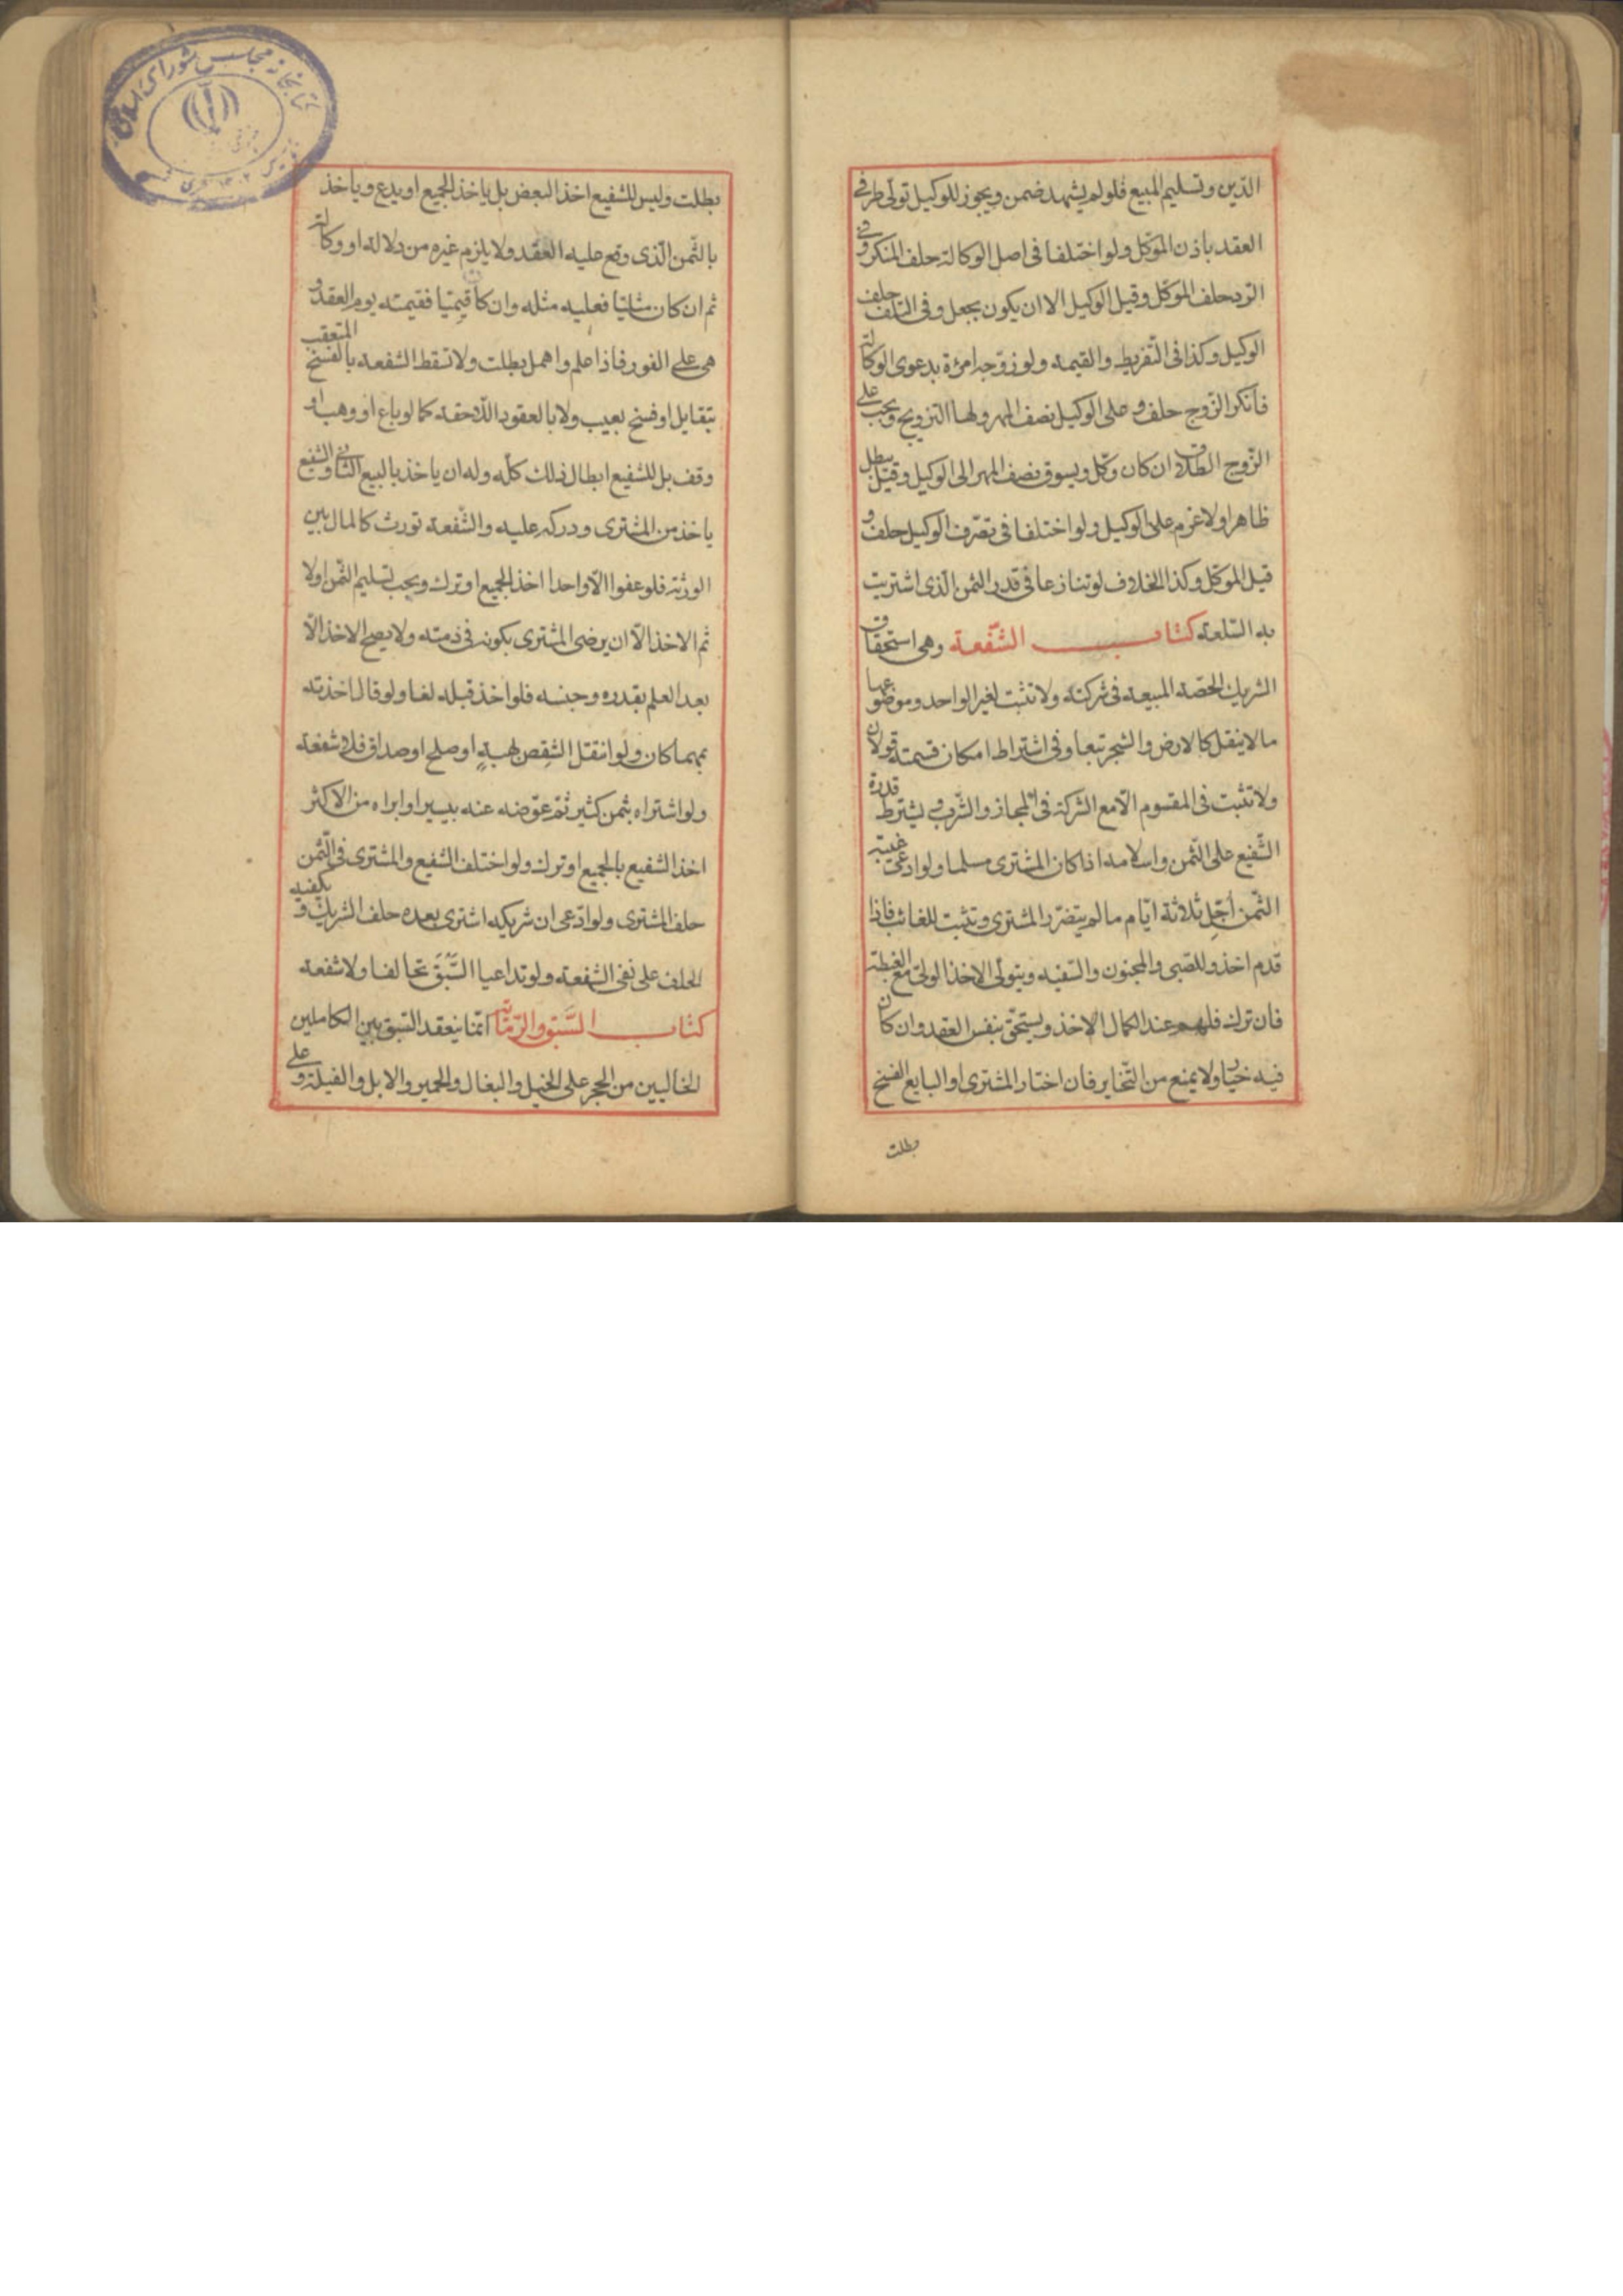 الدّين وتسليم المبيع فلو لم يشهد ضمن ويجوز للوكيل تولّى طرفى
العقد باذن الموكّل ولو اختلفا فى اصل الوكالة حلف المنكر وفى
الرد حلف الموكّل وقيل الوكيل الا ان يكون بجعل وفى التلف حلف
الوكيل وكذا فى التّفريط والقيمة ولو زوّجه امرءة بدعوى الوكالة
فانكر الزّوج حلف و على الوكيل نصف المهر ولها التزويج ويجب على
الزّوج الطلاق ان كان وكّل ويسوق نصف المهر الى الوكيل وقيل يبطل
ظاهرا ولا غرم على الوكيل ولو اختلفا فى تصّرف الوكيل حلف و
قيل الموكّل وكذا الخلاف لو تنازعا فى قدر الثمن الّذى اشتريت
به السّلعة كتاب الشّفعة وهى استحقاق
الشريك الحصّة المبيعة فى شركته ولا تثبت لغير الواحد وموضوعها
ما لا ينقل كالارض والشجر تبعا وفى اشتراط امكان قسمته قولان
ولا تثبت فى المقسوم الّا مع الشركة فى المجاز والشّرب و يشترط قدرة
الشّفيع على الثّمن واسلامه اذا كان المشترى مسلما ولو ادعى غيبته
الثّمن أجّل ثلاثة ايّام ما لم يتضرّر المشترى وتثبت للغائب فاذا
قدم اخذ وللصّبى والمجنون والسّفيه ويتولّى الاخذ الولىّ مع الغبطة
فان ترك فلهم عند الكمال الاخذ ويستحقّ بنفس العقد وان كان
فيه خيار ولا يمنع من التّخاير فان اختار المشترى او البايع الفسخ
بطلت
بطلت وليس للشفيع اخذ البعض بل ياخذ الجميع او يدع وياخذ
بالثّمن الّذى وقع عليه العقد ولا يلزم غيره من دلالة او وكالة
ثم ان كان مثليّا فعليه مثله وان كان قيميّا فقيمته يوم العقد و
هى على الفور فاذا علم واهمل بطلت ولا تسقط الشفعة بالفسخ المتعقب
بتقايل او فسخ بعيب ولا بالعقود اللّاحقة كما لو باع او وهب او
وقف بل للشفيع ابطال ذلك كلّه وله ان ياخذ بالبيع الثانى والشفيع
ياخذ من المشترى ودركه عليه والشّفعة تورث كالمال بين
الورثة فلو عفوا الّا واحدا اخذ الجميع او ترك ويجب تسليم الثّمن اولا
ثم الاخذ الّا ان يرضى المشترى بكونه فى ذمته ولا يصح الاخذ الّا
بعد العلم بقدره وجنسه فلو اخذ قبله لغا ولو قال اخذته
بمهما كان ولو انتقل الشقص بهبةٍ او صلح او صداق فلا شفعة
ولو اشتراه بثمن كثير ثمّ عوّضه عنه بيسير او ابراه من الاكثر
اخذ الشفيع بالجميع او ترك ولو اختلف الشفيع والمشترى فى الثّمن
حلف المشترى ولو ادّعى ان شريكه اشترى بعده حلف الشريك و يكفيه
الحلف على نفى الشفعة ولو تداعيا السَّبْق تحالفا ولا شفعة
كتاب السَّبق والرّماية انّما ينعقد السّبق بين الكاملين
الخاليين من الحجر على الخيل والبغال والحمير والابل والفيلة وعلى